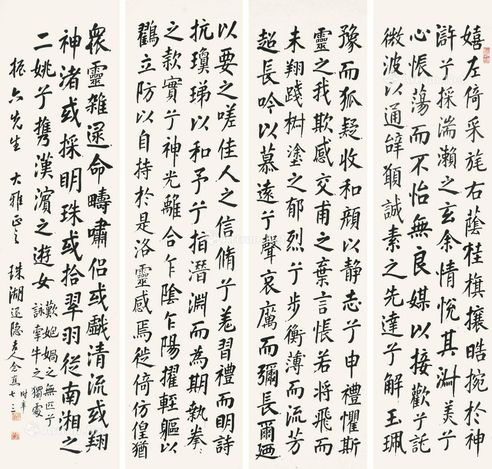 嬉左倚采旄右蔭桂旗攘皓捥於神
滸兮採湍瀨之玄余情悅其淑美兮
心悵蕩而不怡無良媒以接歡兮託
微波以通辭願誠素之先達兮解玉珮
以要之嗟佳人之信脩兮羌習禮而明詩
抗瓊珶以和予兮指潛淵而為期執拳
之款實兮神光離合乍陰乍陽擢輕軀以
鸛立防以自持於是洛靈感焉徙倚仿徨猶
豫而狐疑收和顏以靜志兮申禮懼斯
靈之我欺感交甫之棄言悵若將飛而
未翔踐椒塗之郁烈兮步衡薄而流芳
超長吟以慕遠兮聲哀厲而彌長爾迺
眾靈雜遝命疇嘯侶或戲清流或翔
神渚或採明珠或拾翠羽從南湘之
二姚兮攜漢濱之遊女
歎姮媧之無匹兮
詠牽牛之獨處
振六先生 大雅正之 珠湖
時年